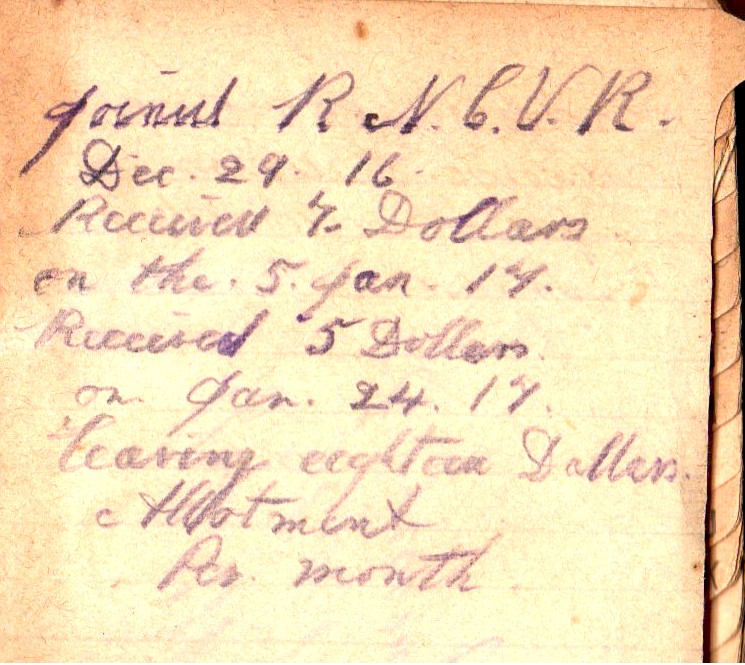 Joined R. N. C. V. R.
Dec. 29. 16.
Received 7 Dollars
on the. 5. Jan. 17.
Received 5 Dollars
on Jan. 24. 17.
Leaving eighteen Dollars.
Allotment
Per month